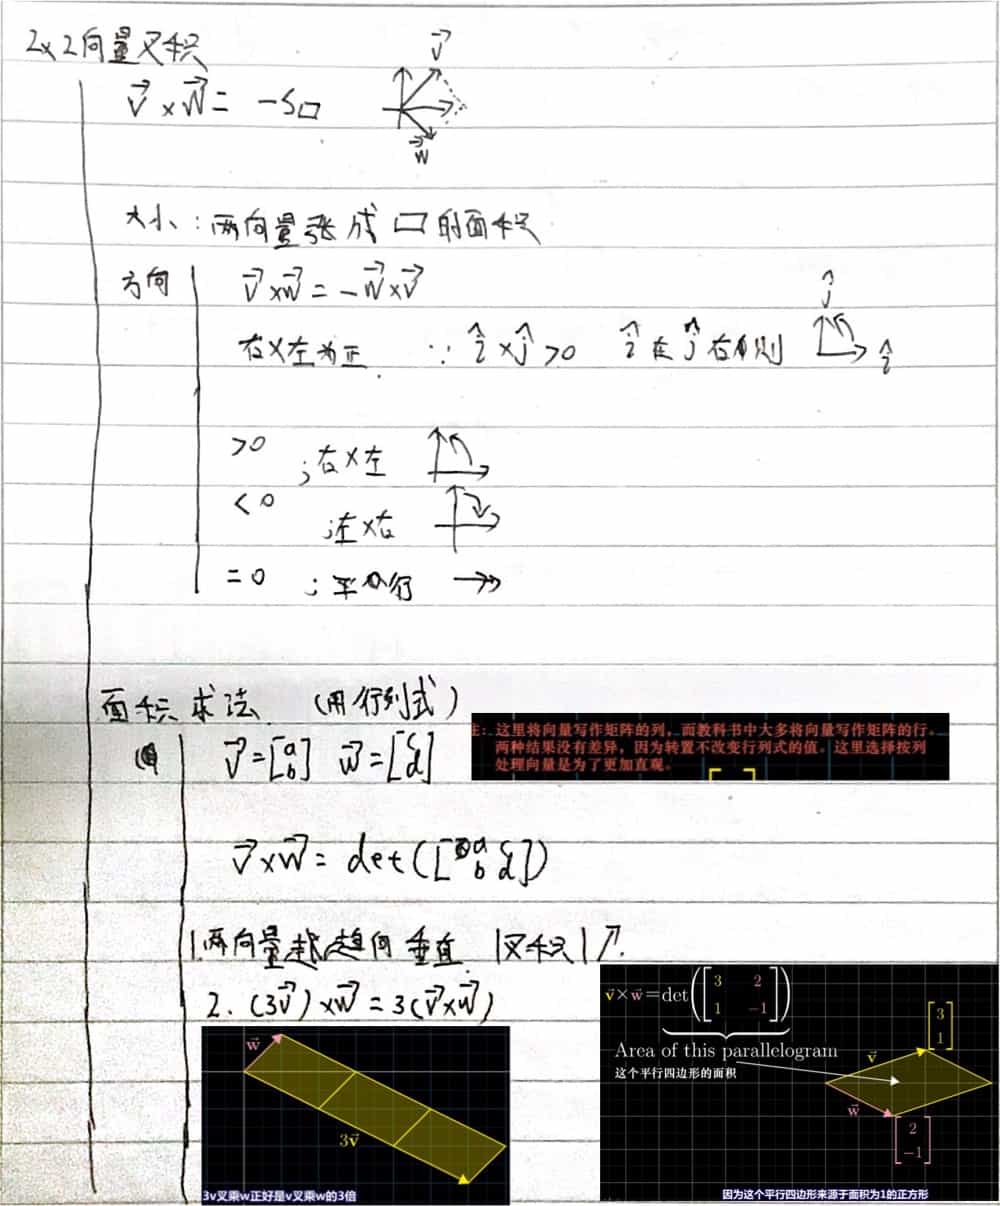 2x2向量叉积
v⃗ × w⃗ = -S□
v⃗
w⃗
大小：两向量张成 □ 的面积
方向
v⃗ × w⃗ = - w⃗ × v⃗
右×左为正 ∵ î × ĵ >0 î 在 ĵ 右侧
ĵ
î
>0 ；右×左
<0 ；左×右
=0 ；平行
面积求法 (用行列式)
注：这里将向量写作矩阵的列，而教科书中大多将向量写作矩阵的行。
两种结果没有差异，因为转置不改变行列式的值。这里选择按列
处理向量是为了更加直观。
v⃗ = [a b] w⃗ = [c d]
v⃗ × w⃗ = det([a c b d])
1.两向量越趋向垂直 |叉积|↗.
2. (3v⃗) × w⃗ = 3(v⃗ × w⃗)
w⃗
3v⃗
3v叉乘w正好是v叉乘w的3倍
v⃗ × w⃗ = det([3 2 1 -1])
Area of this parallelogram
这个平行四边形的面积
[3 1]
v⃗
w⃗
[2 -1]
因为这个平行四边形来源于面积为1的正方形